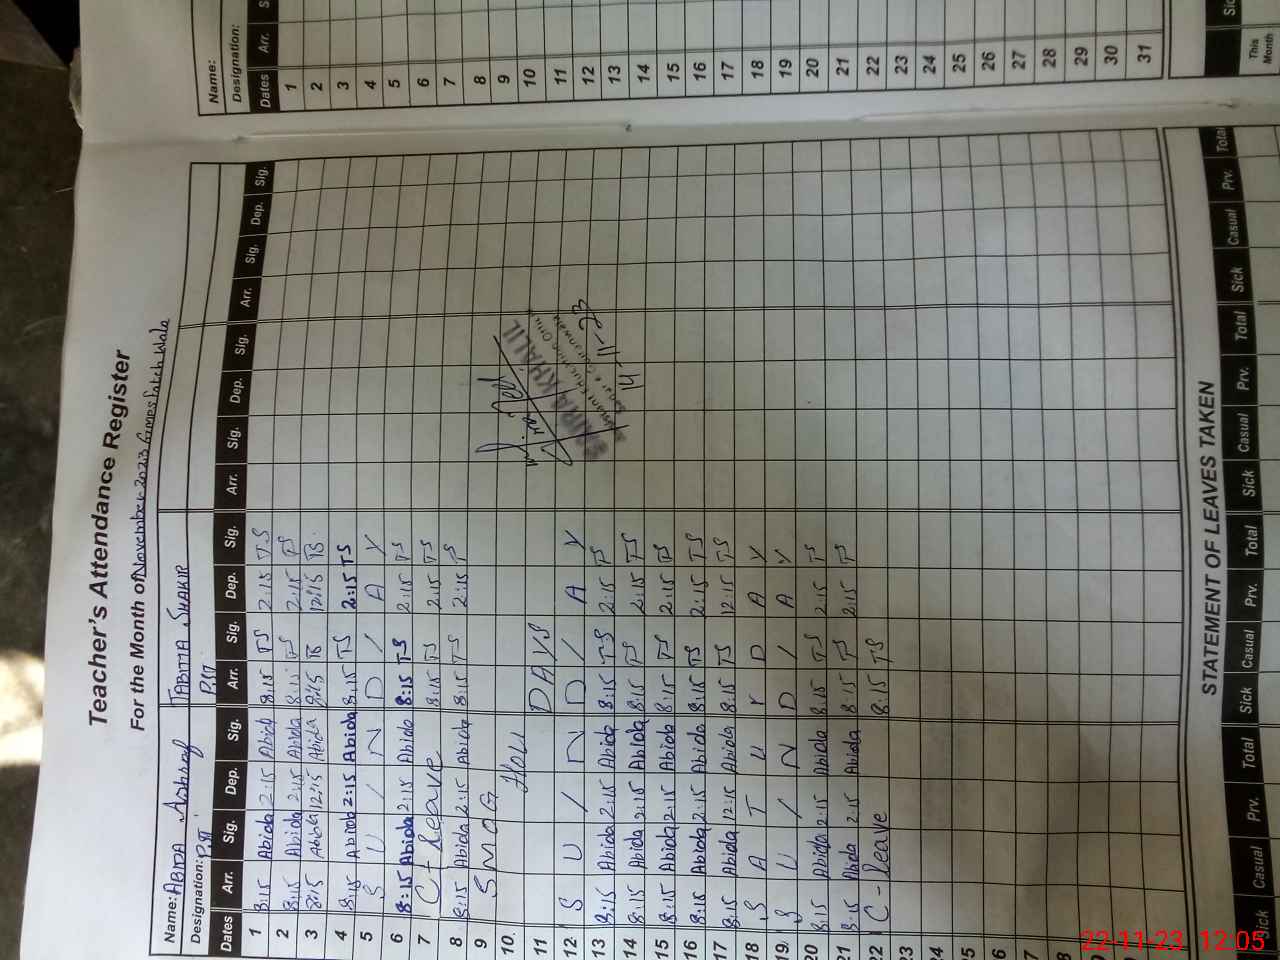 Teacher's Attendance Register
For the Month of November 2023 Gmps Fateh Wala
Name: ABIDA Ashraf TABITTA SHAKIR
Designation: P.ST P.ST
Dates Arr. Sig. Dep. Sig. Arr. Sig. Dep. Sig. Arr. Sig. Dep. Sig. Arr. Sig. Dep. Sig.
1 8:15 Abida 2:15 Abida 8:15 TS 2:15 TS
2 8:15 Abida 2:15 Abida 8:15 TS 2:15 TS
3 8:15 Abida 12:15 Abida 8:15 TS 12:15 TS
4 8:15 Abida 2:15 Abida 8:15 TS 2:15 TS
5 S U / N D / A Y
6 8:15 Abida 2:15 Abida 8:15 TS 2:15 TS
7 C - leave 8:15 TS 2:15 TS
8 8:15 Abida 2:15 Abida 8:15 TS 2:15 TS
9 SMOG
10. Holi DAYS
11
12 S U / N D / A Y
13 8:15 Abida 2:15 Abida 8:15 TS 2:15 TS
14 8:15 Abida 2:15 Abida 8:15 TS 2:15 TS
15 8:15 Abida 2:15 Abida 8:15 TS 2:15 TS
16 8:15 Abida 2:15 Abida 8:15 TS 2:15 TS
17 8:15 Abida 12:15 Abida 8:15 TS 12:15 TS
18 S A T U R D A Y
19 S U / N D / A Y
20 8:15 Abida 2:15 Abida 8:15 TS 2:15 TS
21 8:15 Abida 2:15 Abida 8:15 TS 2:15 TS
22 C - leave 8:15 TS
23
24
25
26
27
28
KHALIL
14-11-23
STATEMENT OF LEAVES TAKEN
Sick Casual Prv. Total Sick Casual Prv. Total Sick Casual Prv. Total Sick Casual Prv. Total
Name:
Designation:
Dates Arr. S
1
2
3
4
5
6
7
8
9
10
11
12
13
14
15
16
17
18
19
20
21
22
23
24
25
26
27
28
29
30
31
Sic
This Month
22-11-23 12:05